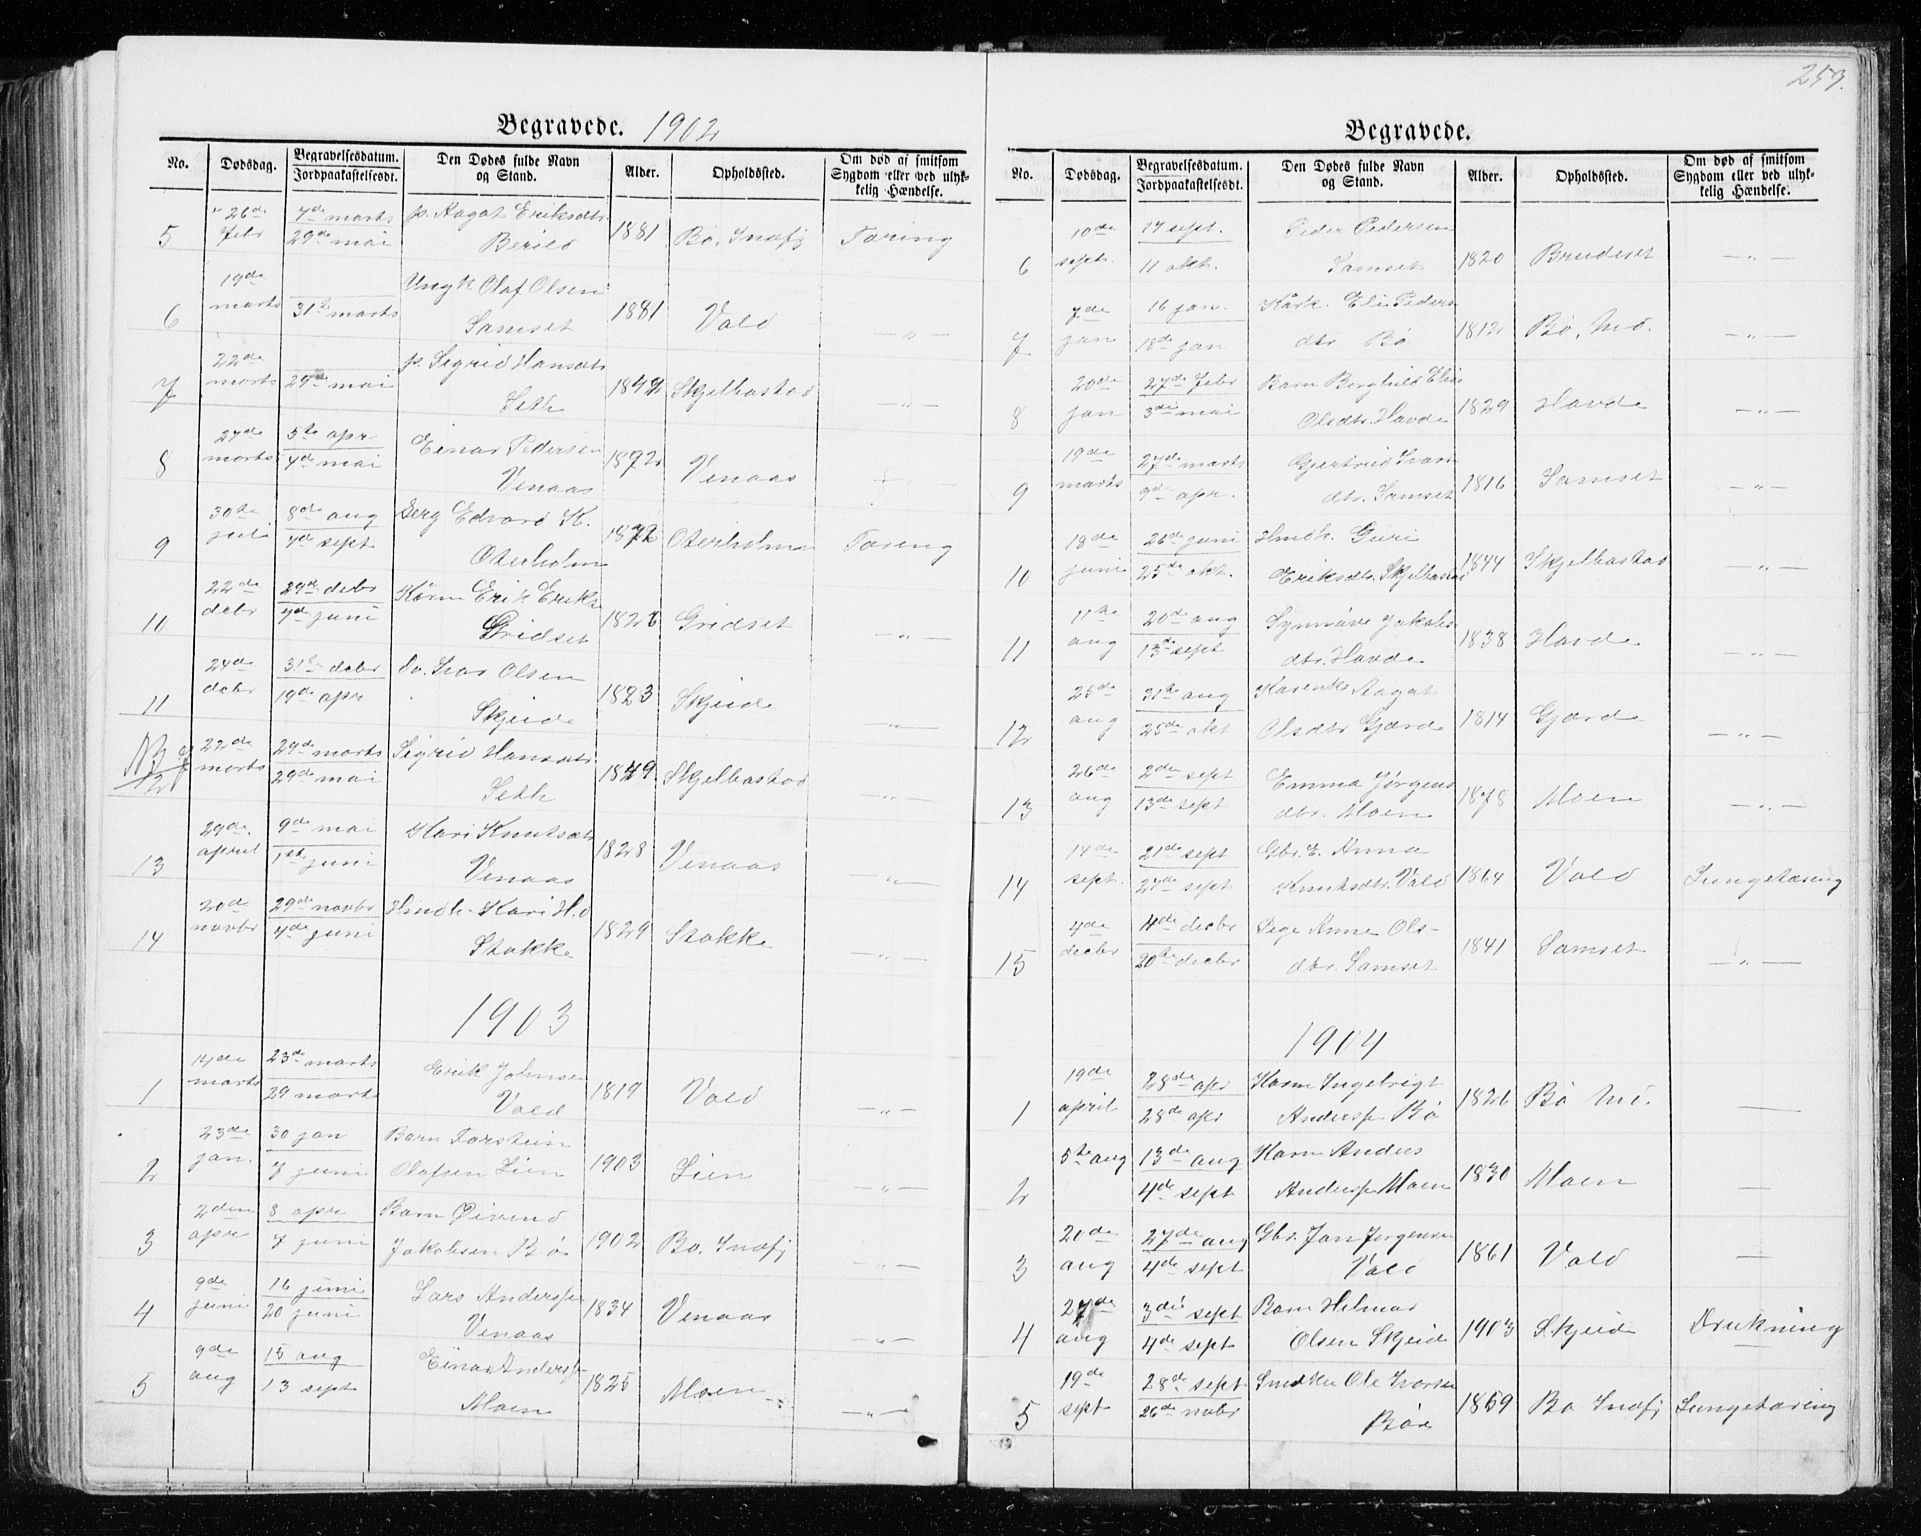 253.
Begravede. 1902
No.
Dødsdag.
Begravelsesdatum.
Jordpaakastelsesdt.
Den Dødes fulde Navn
og Stand.
Alder.
Opholdssted.
Om død af smitsom
Sygdom eller ved ulyk-
kelig Hændelse.
5 26de febr 7de marts 29de mai p. Aagot Eriksdtr Berild 1881 Bø, Indfj Tæring
6 19de marts 31te marts Ungk Olaf Olsen Samset 1881 Vold — „ —
7 22de marts 29de mai p. Sigrid Hansdtr Seth Skjelbostad — „ —
8 27de marts 5te apr 4de mai Einar Pedersen Venaas 1892 Venaas
9 30te juli 8de aug 7de sept Edvard K. Oterholm 1872 Oterholm Tæring
10 22de debr 29de debr 7de juni Kårm Erik Eriks Gridset 1826 Gridset — „ —
11 24de debr 31te debr 19de apr Ivar Olsen Skjeide 1823 Skjeide — „ —
NB 7
12 22de marts 29de marts 29de mai Sigrid Hansdtr Seth 1849 Skjelbostad — „ —
13 29de april 9de mai 1ste juni Kari Knutsdtr Venaas 1828 Venaas — „ —
14 20de novbr 29de novbr 7de juni Kari H.d Stokke 1829 Stokke — „ —
1903
1 14de marts 23de marts 29 marts Erik Johnsen Vold 1819 Vold — „ —
2 23de jan. 30 jan 7 juni Barn Torstein Olafsen Lien 1903 Lien — „ —
3 2den apr 8 apr 7 juni Barn Øivind Jakobsen Bø 1902 Bø, Indfj — „ —
4 9de juni 16 juni 20 juni Lars Anderss. Venaas 1834 Venaas — „ —
5 9de aug 15 aug 13 sept Einar Anderss. Moen 1825 Moen — „ —
Begravede.
No.
Dødsdag.
Begravelsesdatum.
Jordpaakastelsesdt.
Den Dødes fulde Navn
og Stand.
Alder.
Opholdssted.
Om død af smitsom
Sygdom eller ved ulyk-
kelig Hændelse.
6 10de sept. 17 sept. 11 okt. Peder Pedersen Samset 1820 Brudeset — „ —
7 7de jan 16 jan. 18de jan Kårk. Eli Peders dtr Bø 1812 Bø, — „ —
8 20de jan 27de febr 3die mai Barn Borghild Elise Olsdtr. Havde 1829 Havde — „ —
9 19de marts 27de marts 9de apr. Gjertrud Ivars dtr. Samset 1816 Samset — „ —
10 18de juni 26de juni 25de okt. Guri Eriksdtr. Skjelbostad 1844 Skjelbostad — „ —
11 11te aug 20de aug 13de sept Synnøve Jakobs dtr. Havde 1838 Havde — „ —
12 25de aug 31te aug 25de okt Aagot Olsdtr Gjærde 1814 Gjærde — „ —
13 26de aug 2den sept 13de sept Emma Jørgens dtr. Moen 1878 Moen — „ —
14 14de sept. 21de sept 27de sept Gbr. E. Anna Knutsdtr. Vold 1864 Vold Lungetæring
15 4de decbr 14de decbr 20de decbr Pige Anne Ols- dtr. Samset 1841 Samset — „ —
1904
1 19de april 28de apr 28de apr Kårm Ingebrigt Anderss. Bø 1826 Bø —
2 5te aug 13de aug 4de sept Kårm Anders Anderss. Moen 1830 Moen —
3 20de aug 27de aug 4de sept Gbr. Jon Jørgensen Vold 1861 Vold —
4 27de aug 3die sept 4de sept Barn Hilmar Olsen Skjeide 1903 Skjeide Drukning
5 19de sept 28de sept 26de novbr Ole Ivarsen Bøe 1869 Bø Indfj Lungetæring